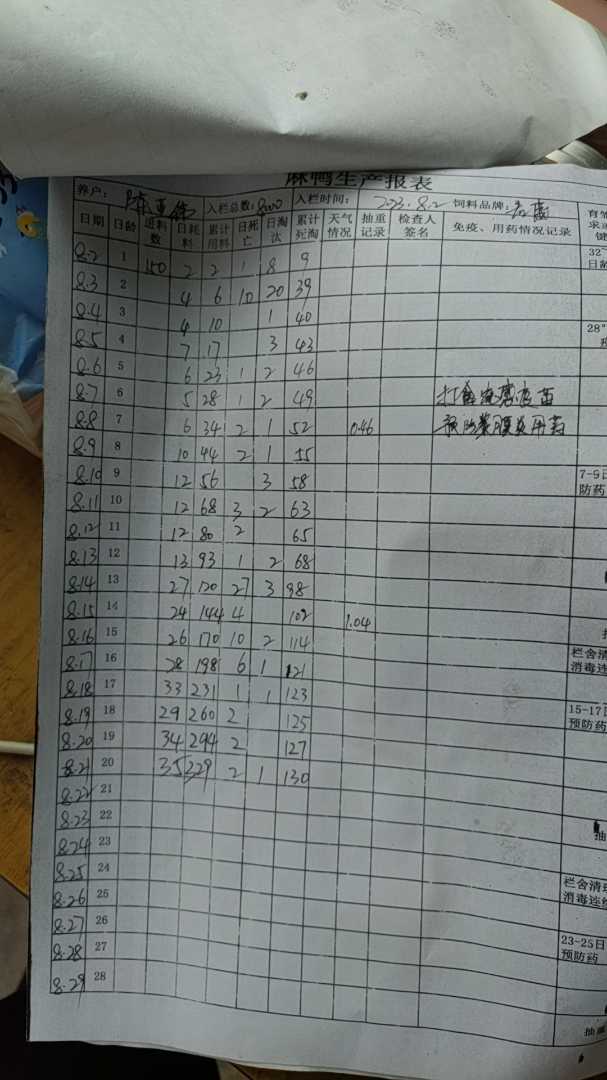 麻鸭生产报表
养户: 入栏总数:8000 入栏时间: 2023.8.2 饲料品牌:
日期 日龄 进料数 日耗料 累计用料 日死亡 日淘汰 累计死淘 天气情况 抽重记录 检查人签名 免疫、用药情况记录
8.2 1 150 2 2 1 8 9 32
8.3 2 4 6 10 20 39 日龄
8.4 3 4 10 1 40
8.5 4 7 17 3 43 28°
8.6 5 6 23 1 2 46
8.7 6 5 28 1 2 49 打禽流感疫苗
8.8 7 6 34 2 1 52 0.46 预防浆膜炎用药
8.9 8 10 44 2 1 55
8.10 9 12 56 3 58 7-9日
8.11 10 12 68 3 2 63 防药
8.12 11 12 80 2 65
8.13 12 13 93 1 2 68
8.14 13 27 120 27 3 98
8.15 14 24 144 4 102 1.04
8.16 15 26 170 10 2 114 栏舍清
8.17 16 28 198 6 1 121 消毒连
8.18 17 33 231 1 1 123
8.19 18 29 260 2 125 15-17日
8.20 19 34 294 2 127 预防药
8.21 20 35 329 2 1 130
8.22 21
8.23 22
8.24 23 抽
8.25 24
8.26 25 栏舍清理
8.27 26 消毒连续
8.28 27 23-25日
8.29 28 预防药
抽